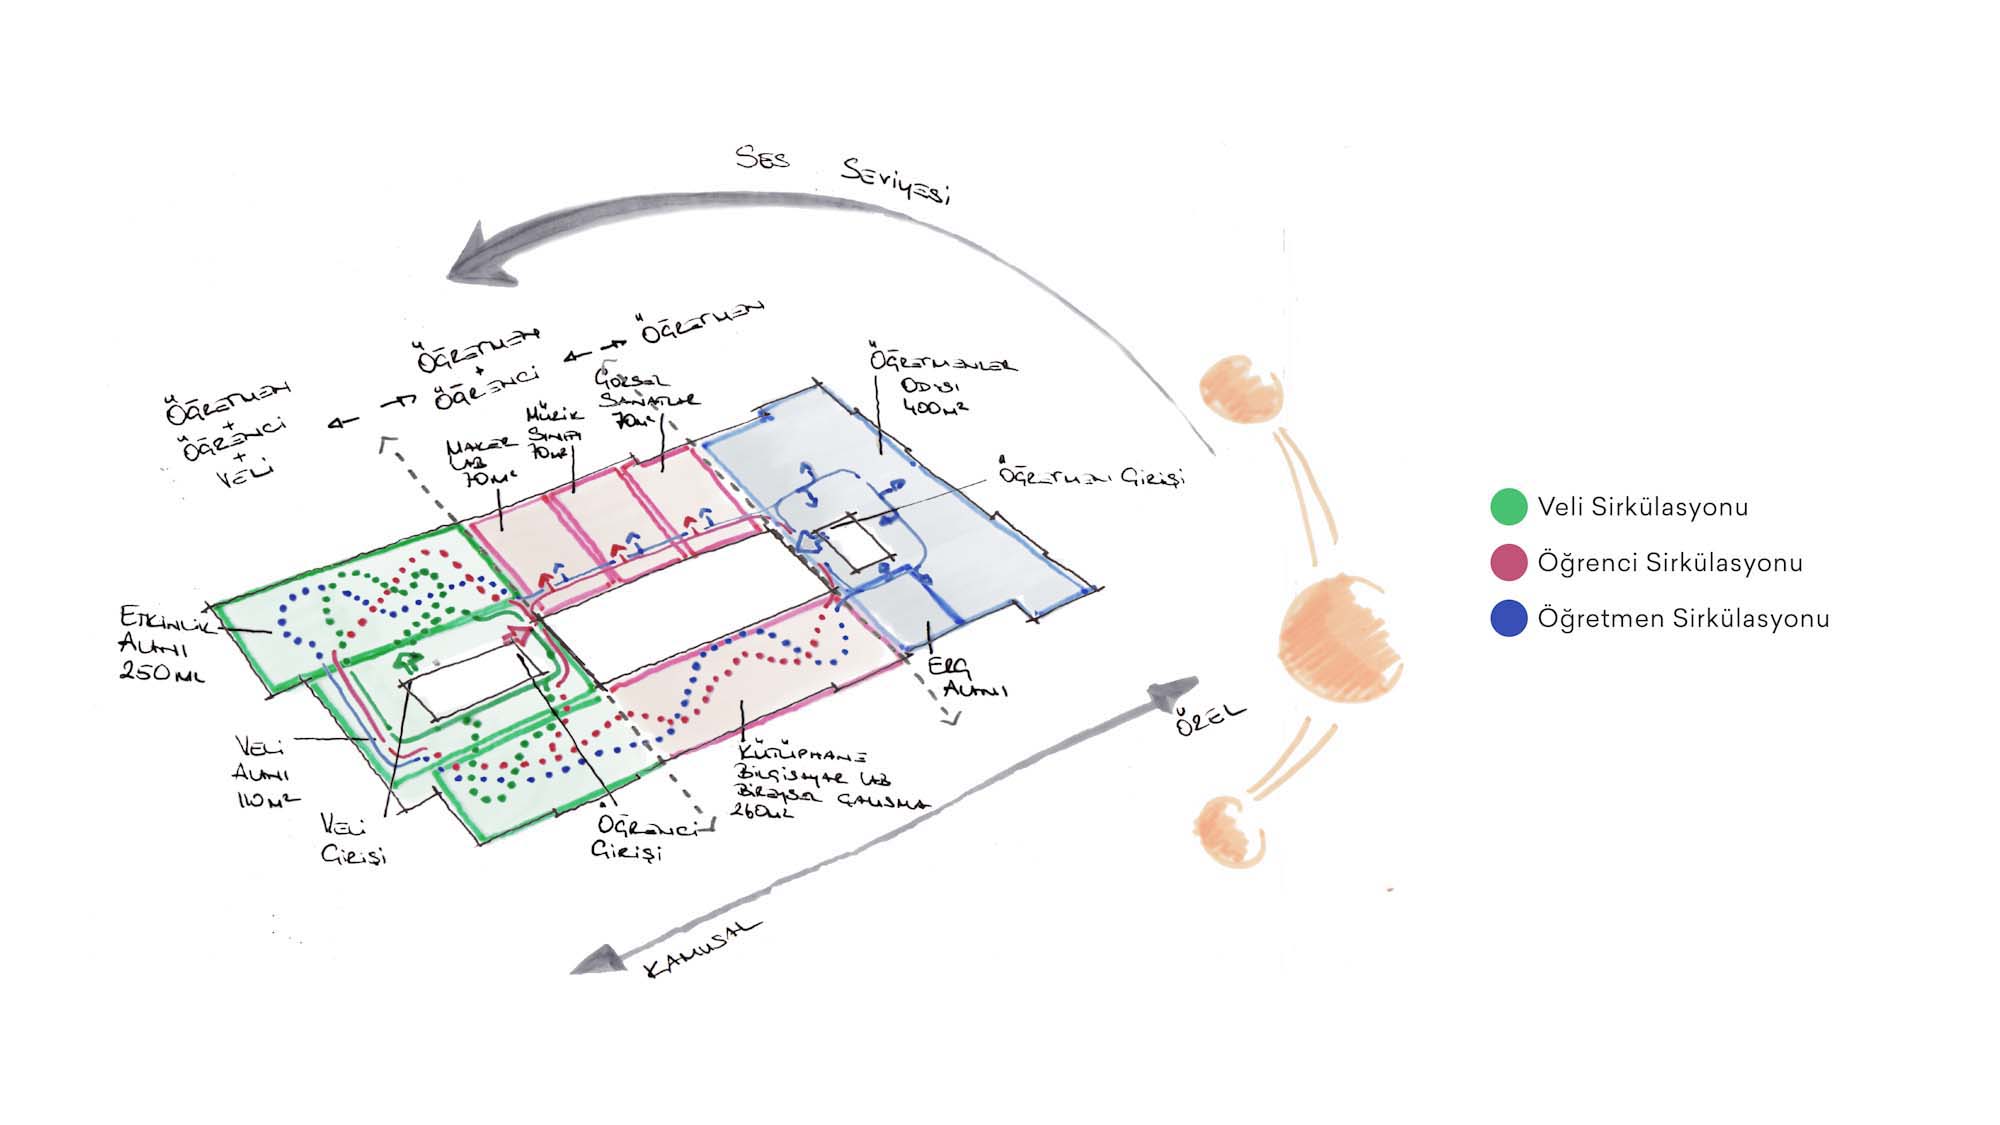 SES SEVİYESİ
ÖĞRETMEN
ÖĞRETMEN
+
ÖĞRENCİ
ÖĞRETMEN
+
ÖĞRENCİ
+
VELİ
GÖRSEL
SANATLAR
70m²
MÜZİK
SINIFI
70m²
MAKER
LAB
70m²
ÖĞRETMENLER
ODASI
400m²
ÖĞRETMEN GİRİŞİ
ETKİNLİK
ALANI
250m²
VELİ
ALANI
110m²
VELİ
GİRİŞİ
ÖĞRENCİ
GİRİŞİ
KÜTÜPHANE
BİLGİSAYAR LAB
BİREYSEL ÇALIŞMA
260m²
ALANI
ÖZEL
KAMUSAL
Veli Sirkülasyonu
Öğrenci Sirkülasyonu
Öğretmen Sirkülasyonu